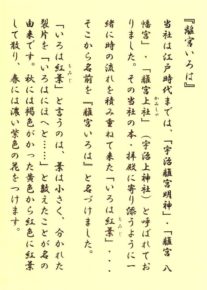 『離宮いろは』
当社は江戸時代までは、「宇治離宮明神」・「離宮八
幡宮」・「離宮上社」（宇治上神社）と呼ばれてお
りました。その当社の本・拝殿に寄り添うように一
緒に時の流れを積み重ねて来た「いろは紅葉」・・・
そこから名前を『離宮いろは』と名づけました。
「いろは紅葉」と言うのは、葉は小さく、分かれた
裂片を「いろはにほへと……」と数えたことが名の
由来です。秋には褐色がかった黄色から紅色に紅葉
して散り、春には濃い紫色の花をつけます。